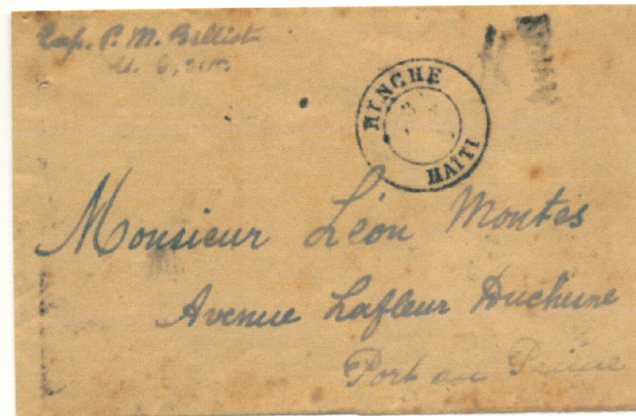 Cap. P. M.
HINCHE
HAITI
Monsieur Léon Montès
Avenue Lafleur Duchene
Port au Prince